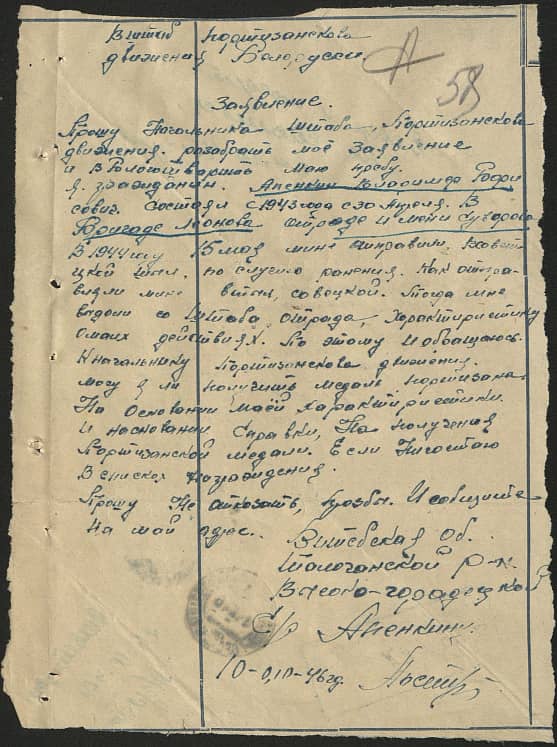 В штаб партизанскова
движения Белорусии
58
Заявление.
Прошу Начальника Штаба, Портизанскова
движения. розобрать моё Заявление
и В мою прозбу.
Я. гражданин. Апенкин Владимир
сович. Состоял с 1943 года с 30 Апреля. В
Бригаде Леонова отряде имени Суворова
В 1944 году 15 мая мине отправили, В совет
цкой тыл. по случаю ранения. Как отпра
вляли мине в тыл, совецкой. Тогда мне
выдали со Штаба, отряда, характиристику
о маих действиях. По этому и обращаюсь.
К начальнику Портизанскова движения.
могу я ли получить медаль портизана.
На Основании Маей Характиристики
И наосновании Справки, На получения
Портизанской медали. Если
В списках награждения.
Прошу Не отказать, прозбы. И сообщите
на мой адрес.
Витебская об.
Талочанской р-н.
Высоко-гарадецкой
С/с Апенкин.
46 г.